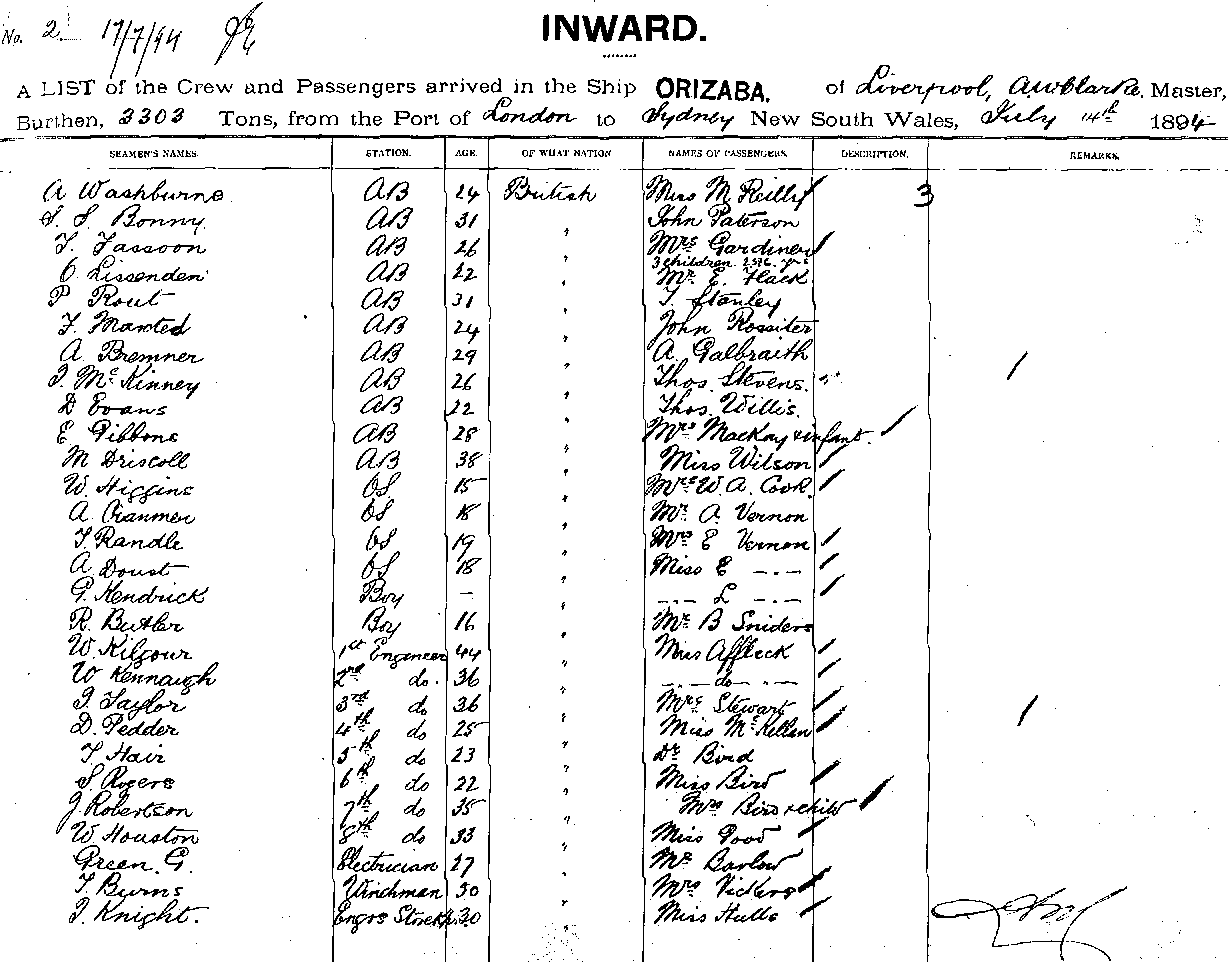 No. 2 17/7/94
INWARD.
A LIST of the Crew and Passengers arrived in the Ship ORIZABA. of Liverpool, A.W. Clarke. Master,
Burthen, 3303 Tons, from the Port of London to Sydney New South Wales, July 14th 1894
SEAMEN'S NAMES. STATION. AGE. OF WHAT NATION NAMES OF PASSENGERS. DESCRIPTION. REMARKS.
A Washburne AB 24 British Miss M Reilly 3
S. S. Bonny AB 31 " John Paterson
T. Tassoon AB 26 " Mrs Gardiner
3 children
O. Lissenden AB 22 " Mr E. Flack
P Rout AB 31 " T. Stanley
T. Mansted AB 24 " John Rossiter
A. Bremner AB 29 " A. Galbraith
J. McKinney AB 26 " Thos. Stevens.
D Evans AB 22 " Thos. Willis.
E. Gibbons AB 28 " Mrs Mackay & infant.
M Driscoll AB 38 " Miss Wilson
W. Higgins OS 15 " Mrs W. A. Cook.
A. Cranmer OS 18 " Mr A Vernon
T. Randle OS 19 " Mrs E Vernon
A Doust OS 18 " Miss E -.-
G. Hendrick Boy - " -.- L -.-
R. Butler Boy 16 " Mr B Sniders
W. Kilgour 1st Engineer 44 " Miss Affleck
W Kennaugh 2nd do. 36 " -.- do -.-
J. Taylor 3rd do 36 " Mrs Stewart
D. Pedder 4th do 25 " Miss McKellan
T Hair 5th do 23 " Dr Bird
S. Rogers 6th do 22 " Miss Bird
J. Robertson 7th do 35 " Mrs Bird & child
W Houston 8th do 33 " Miss Good
Green. G. Electrician 27 " Mr Barlow
T. Burns Winchman 30 " Mrs Vickers
J. Knight. Engrs Storekpr. 30 " Miss Hulls